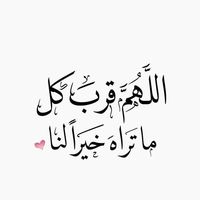 اللَّهُمَّ قرِبَ كل
ما تَراهَ خَيرَاً لنا